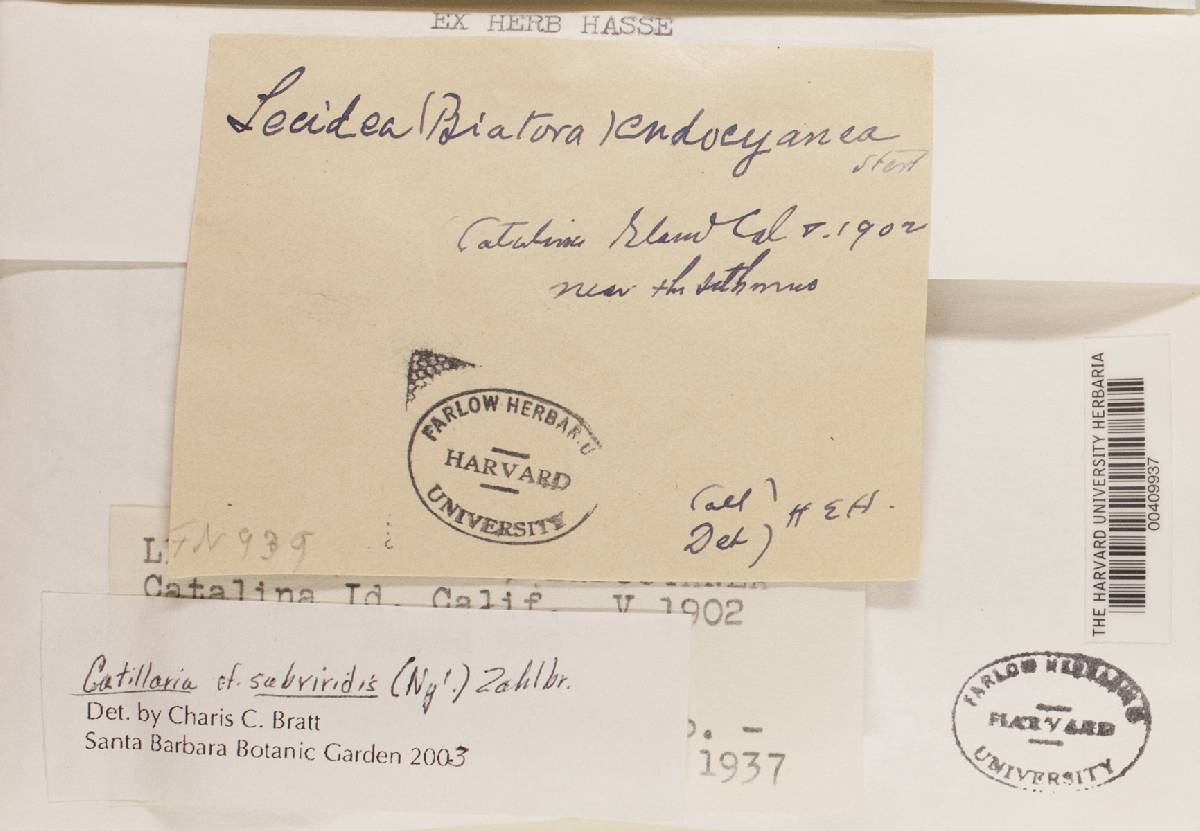 EX HERB HASSE
Lecidea (Biatora) endocyanea
Catalina Island Cal 5.1902
near the isthmus
FARLOW HERBAR.U
HARVARD
UNIVERSITY
Coll }
Det } H E H.
TN 939
Catalina Id. Calif. V 1902
Catillaria cf. subviridis (Nyl.) Zahlbr.
Det. by Charis C. Bratt
Santa Barbara Botanic Garden 2003
1937
THE HARVARD UNIVERSITY HERBARIA
00409937
FARLOW HERBARIUM
HARVARD
UNIVERSITY